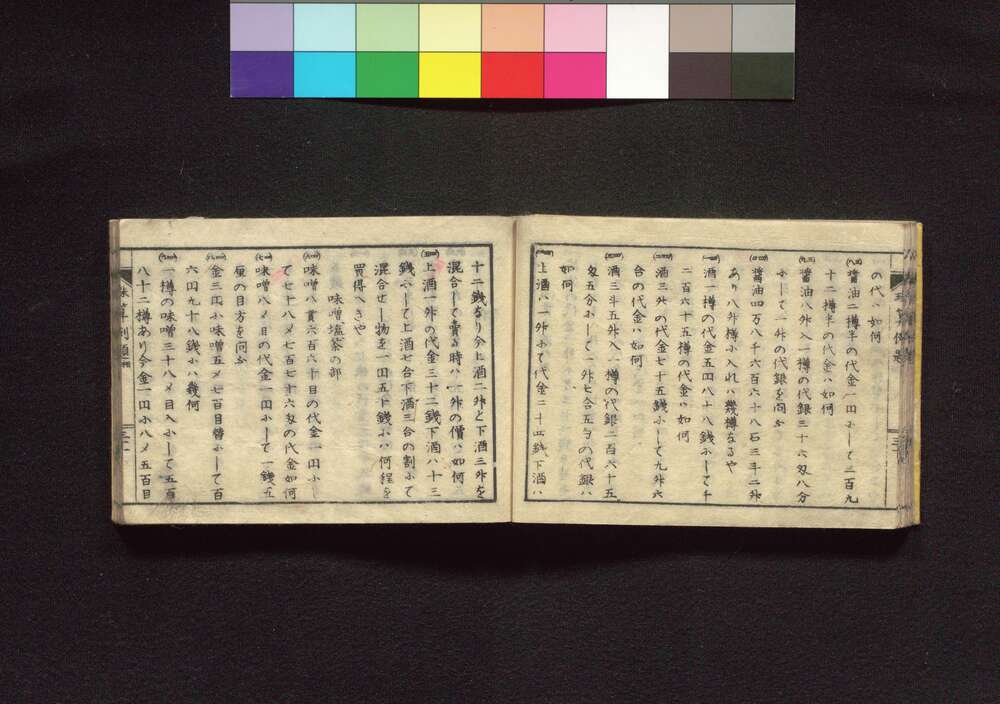 の代ハ如何
醤油二樽半の代金一円ふーて二百九
十二樽半の代金ハ如何
醤油八升入一樽の代銀三十六匁八分
ふーて一升の代銀を問ふ
醤油四万八千六百六十八石三斗二升
あり八升樽ふ入れハ幾樽なるや
酒一樽の代金五円八十八銭ふーて千
二百六十五樽の代金ハ如何
酒三升の代金七十五銭ふーて九升六
合の代金ハ如何
酒三斗五升入一樽の代銀二百六十五
匁五分ふーて一升七合五勺の代銀ハ
如何
上酒ハ一升ふて代金二十四銭下酒ハ
十二銭なり今上酒二升と下酒三升を
混合して賣る時ハ一升の價ハ如何
上酒一升の代金三十二銭下酒ハ十三
銭ふーて上酒七合下酒三合の割ふて
混合せし物を一円五十銭ふハ何程を
買得へきや
味噌塩茶の部
味噌八貫六百六十目の代金一円ふー
て七十八〆七百七十六匁の代金如何
味噌八〆目の代金一円ふーて一銭五
厘の目方を問ふ
金三円ふ味噌五〆七百目替ふーて百
六円九十八銭ふハ幾何
一樽の味噌三十八〆目入ふーて五百
八十二樽あり今金一円ふ八〆五百目